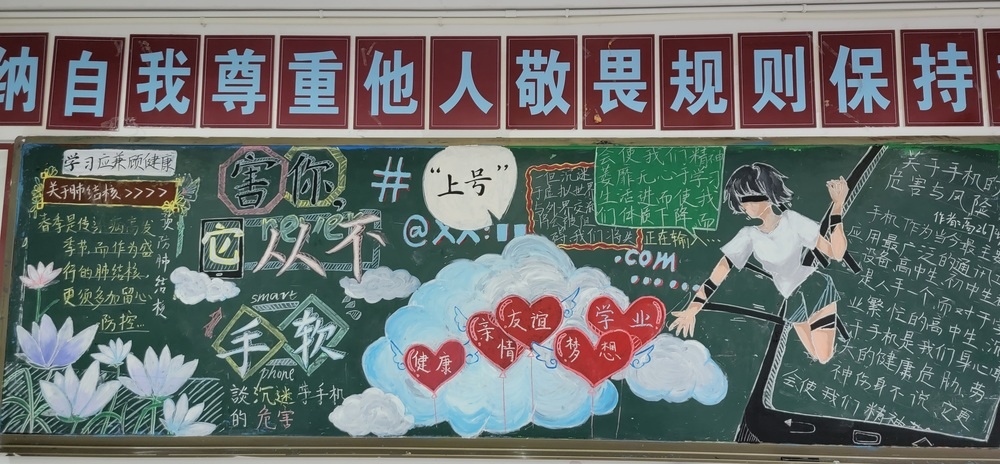 纳自我尊重他人敬畏规则保持
学习应兼顾健康
关于肺结核>>>>
春季是传染病高发
季节,而作为盛
行的肺结核,
更须多加留心
防控...
更防肺结核
害你,
never
它从不
smart
手软
phone
談沉迷于手机
的危害
#
“上号”
@XX:
.com
......
但沉迷
于虚拟世界
会使我们精神
萎靡无心于学习
生活进而使我
们体质下降而
正在输入...
健康
亲情
友谊
梦想
学业
关于手机的
危害与风险
手机作为当今最主要
应用最广泛的通讯
设备,高中生,初中生
是人手一个,而对于
业繁忙的高中生
于手机是我们身心
大的健康危胁,劳
神伤身不说,还更
会使我们精神